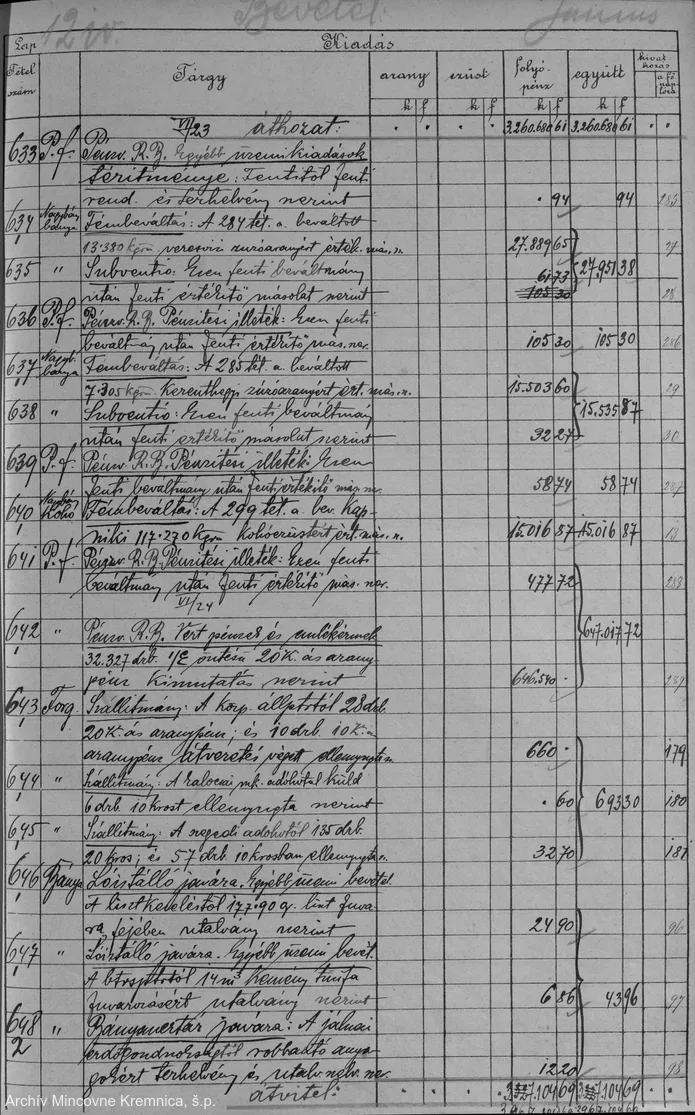 Bevétel. Junius
12 iv.
Lap Kiadás
Tétel szám Tárgy arany ezüst folyó-pénz együtt hivat kozás
k f k f k f k f a fő nap lóra
VI/23 áthozat: 3.260.680 61 3.260.680 61
633 P.f. Pénzv. R.B. Egyébb üzemi kiadások
téritménye: Fentitöl fenti
rend. és terhelvény szerint . 94 94 285
634 Nagybánya Fémbeváltás: A 284 tét. a. beváltott
13.380 kgrm veresvizi zuzóaranyért érték. más. sz. 27.889 65 27
635 " Subventio: Ezen fenti beváltmány 61 73 27.951 38
után fenti értéritö másolat szerint 105 30 28
636 P.f. Pénzv. R.B. Pénzitési illeték: Ezen fenti
beváltmány után fenti értéritö más. szer. 105 30 105 30 286
637 Nagybánya Fémbeváltás: A 285 tét. a. beváltott
7.305 kgrm. Kereszthegyi zúzóaranyért ért. más. sz. 15.503 60 29
638 " Subventió: Ezen fenti beváltmány 15.535 87
után fenti értéritö másolat szerint 32 27 30
639 P.f. Pénzv. R.B. Pénzitési illeték: Ezen
fenti beváltmány után fenti értékitö más. sz. 58 74 58 74 287
640 Nagybány Kohó Fémbeváltás: A 299 tét. a. bev. Kap-
niki 117.270 kgrm kohóezüstért ért. más. sz. 15.016 87 15.016 87
641 P.f. Pénzv. R.B. Pénzitési illeték: Ezen fenti
beváltmány után fenti értéritö más. szer. 477 72
VI/24
642 " Pénzv. R.B. Vert pénzek és emlékérmek 647.017 72
32.327 drb. öntésü 20 K. ás arany-
pénz Kimutatás szerint 646.540 .
643 Forg. Szállitmány: A körp. állptrtól 28 drb.
20 K. ás aranypénz; és 10 drb. 10 K. s
aranypénz átveretés végett ellennyugta sz. 660 . 179
644 " Szállitmány: A kalocsai mk. adóhivtal küld
6 drb. 10 krost ellennyugta szerint . 60 693 30 180
645 " Szállitmány: A szegedi adohivtól 135 drb.
20 kros; és 57 drb. 10 krosban ellennyugta sz. 32 70 181
646 Bánya Lóistálló javára. Egyébb üzemi bevétel.
A lisztkezeléstöl 177.90 q. liszt fuva-
ra fejében utalvány szerint 24 90 96
647 " Lóistálló javára. Egyébb üzemi bevét.
14 m³ Kemény tüzifa
fuvarozásért utalvány szerint 6 86 43 96 97
648 " Bányaszertár javára: A jálnai
2 erdögondnokságtól robbantó anya-
gokért terhelvény és utalv. szer. 12 20 98
átvitel:
Archív Mincovne Kremnica, š.p.